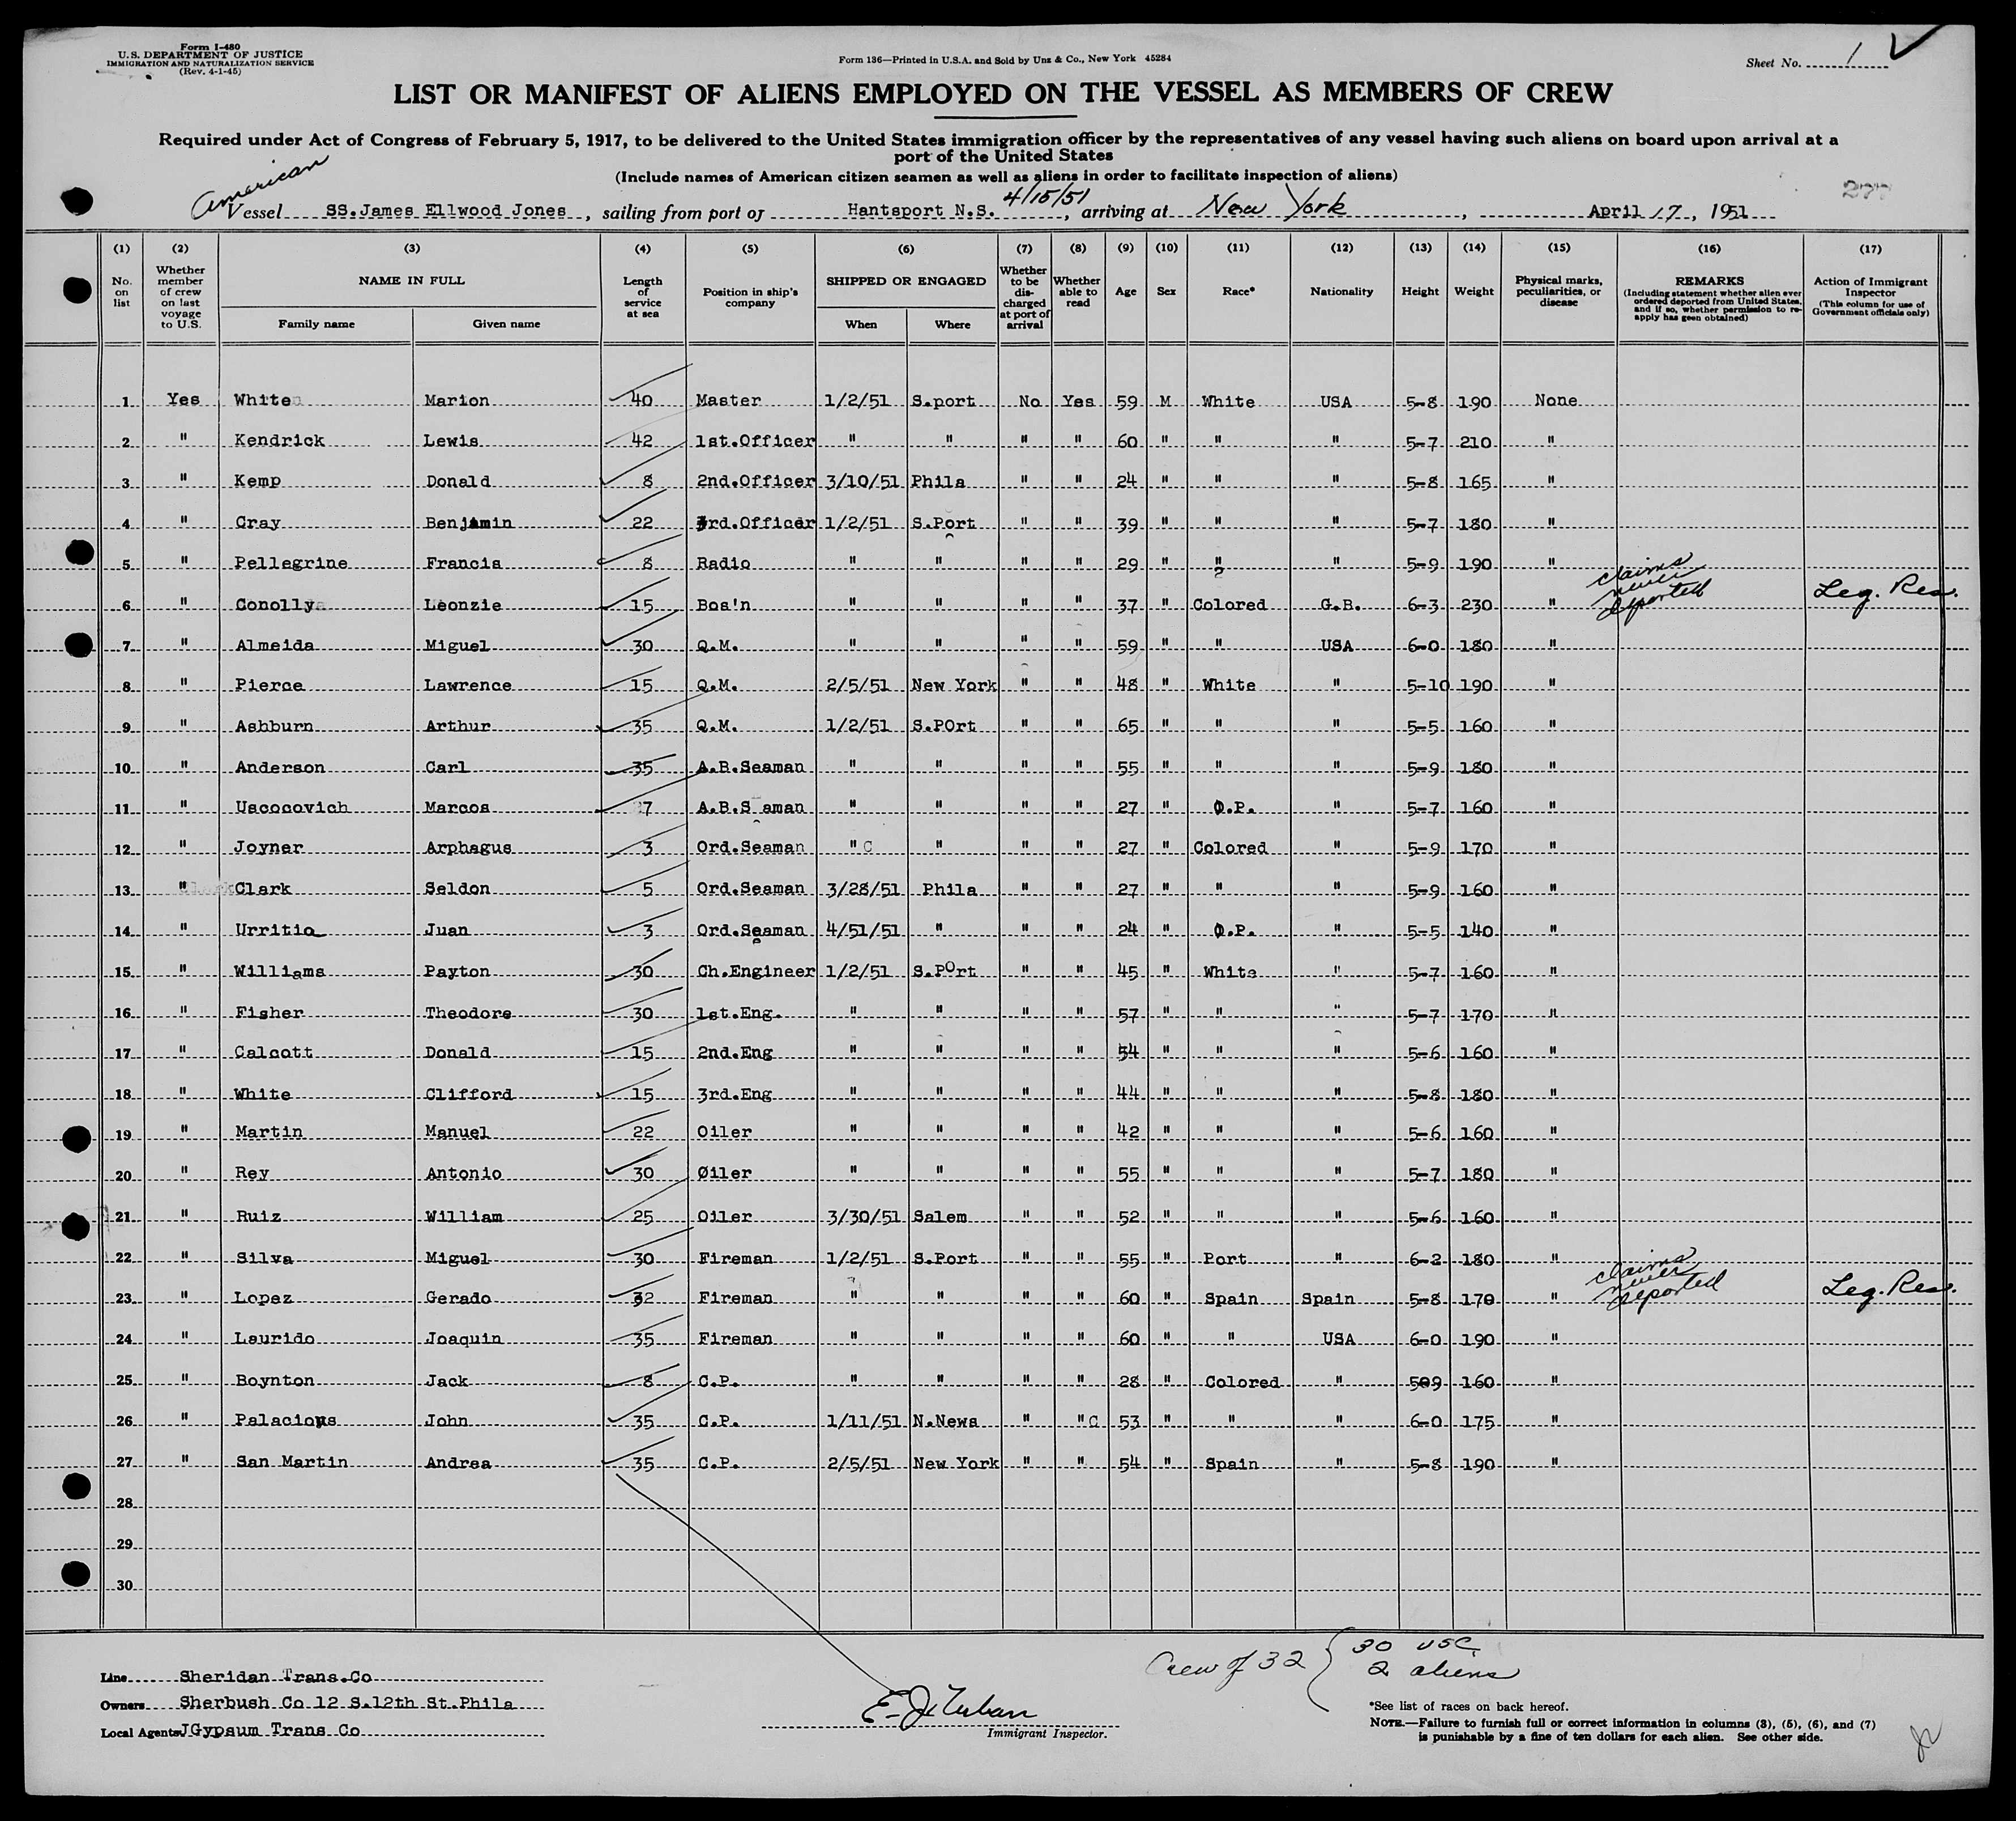 Form I-480
U.S. DEPARTMENT OF JUSTICE
IMMIGRATION AND NATURALIZATION SERVICE
(Rev. 4-1-45)
Form 136—Printed in U.S.A. and Sold by Unz & Co., New York 45284
Sheet No. 1
LIST OR MANIFEST OF ALIENS EMPLOYED ON THE VESSEL AS MEMBERS OF CREW
Required under Act of Congress of February 5, 1917, to be delivered to the United States immigration officer by the representatives of any vessel having such aliens on board upon arrival at a
port of the United States
(Include names of American citizen seamen as well as aliens in order to facilitate inspection of aliens)
American
4/15/51
277
Vessel SS.James Ellwood Jones, sailing from port of Hantsport N.S., arriving at New York, April 17, 1951
(1) (2) (3) (4) (5) (6) (7) (8) (9) (10) (11) (12) (13) (14) (15) (16) (17)
No. on list
Whether member of crew on last voyage to U.S.
NAME IN FULL
Family name Given name
Length of service at sea
Position in ship's company
SHIPPED OR ENGAGED
When Where
Whether to be discharged at port of arrival
Whether able to read
Age
Sex
Race*
Nationality
Height
Weight
Physical marks, peculiarities, or disease
REMARKS
(Including statement whether alien ever ordered deported from United States, and if so, whether permission to reapply has been obtained)
Action of Immigrant Inspector
(This column for use of Government officials only)
1 Yes White Marion 40 Master 1/2/51 S.port No Yes 59 M White USA 5-8 190 None
2 " Kendrick Lewis 42 1st.Officer " " " " 60 " " " 5-7 210 "
3 " Kemp Donald 8 2nd.Officer 3/10/51 Phila " " 24 " " " 5-8 165 "
4 " Gray Benjamin 22 3rd.Officer 1/2/51 S.Port " " 39 " " " 5-7 180 "
5 " Pellegrine Francis 8 Radio " " " " 29 " " " 5-9 190 "
6 " Conolly Leonzie 15 Bos'n " " " " 37 " Colored G.B. 6-3 230 " claims never deported Leg. Res.
7 " Almeida Miguel 30 Q.M. " " " " 59 " " USA 6-0 180 "
8 " Pierce Lawrence 15 Q.M. 2/5/51 New York " " 48 " White " 5-10 190 "
9 " Ashburn Arthur 35 Q.M. 1/2/51 S.POrt " " 65 " " " 5-5 160 "
10 " Anderson Carl 35 A.B.Seaman " " " " 55 " " " 5-9 180 "
11 " Uscocovich Marcos 7 A.B.S aman " " " " 27 " O.P. " 5-7 160 "
12 " Joyner Arphagus 3 Ord.Seaman " " " " 27 " Colored " 5-9 170 "
13 " Clark Seldon 5 Ord.Seaman 3/28/51 Phila " " 27 " " " 5-9 160 "
14 " Urritio Juan 3 Ord.Seaman 4/51/51 " " " 24 " O.P. " 5-5 140 "
15 " Williams Payton 30 Ch.Engineer 1/2/51 S.POrt " " 45 " White " 5-7 160 "
16 " Fisher Theodore 30 1st.Eng. " " " " 57 " " " 5-7 170 "
17 " Calcott Donald 15 2nd.Eng " " " " 54 " " " 5-6 160 "
18 " White Clifford 15 3rd.Eng " " " " 44 " " " 5-8 180 "
19 " Martin Manuel 22 Oiler " " " " 42 " " " 5-6 160 "
20 " Rey Antonio 30 Oiler " " " " 55 " " " 5-7 180 "
21 " Ruiz William 25 Oiler 3/30/51 Salem " " 52 " " " 5-6 160 "
22 " Silva Miguel 30 Fireman 1/2/51 S.Port " " 55 " Port " 6-2 180 "
23 " Lopez Gerado 32 Fireman " " " " 60 " Spain Spain 5-8 170 " claims never deported Leg. Res.
24 " Laurido Joaquin 35 Fireman " " " " 60 " " USA 6-0 190 "
25 " Boynton Jack 8 C.P. " " " " 28 " Colored " 509 160 "
26 " Palacious John 35 C.P. 1/11/51 N.News " " C 53 " " " 6-0 175 "
27 " San Martin Andrea 35 C.P. 2/5/51 New York " " 54 " Spain " 5-8 190 "
28
29
30
Line Sheridan Trans.Co
Owners Sherbush Co 12 S.12th St.Phila
Local Agents JGypsum Trans Co
Immigrant Inspector.
Crew of 32 { 30 USC
2 aliens
*See list of races on back hereof.
NOTE.—Failure to furnish full or correct information in columns (3), (5), (6), and (7)
is punishable by a fine of ten dollars for each alien. See other side.